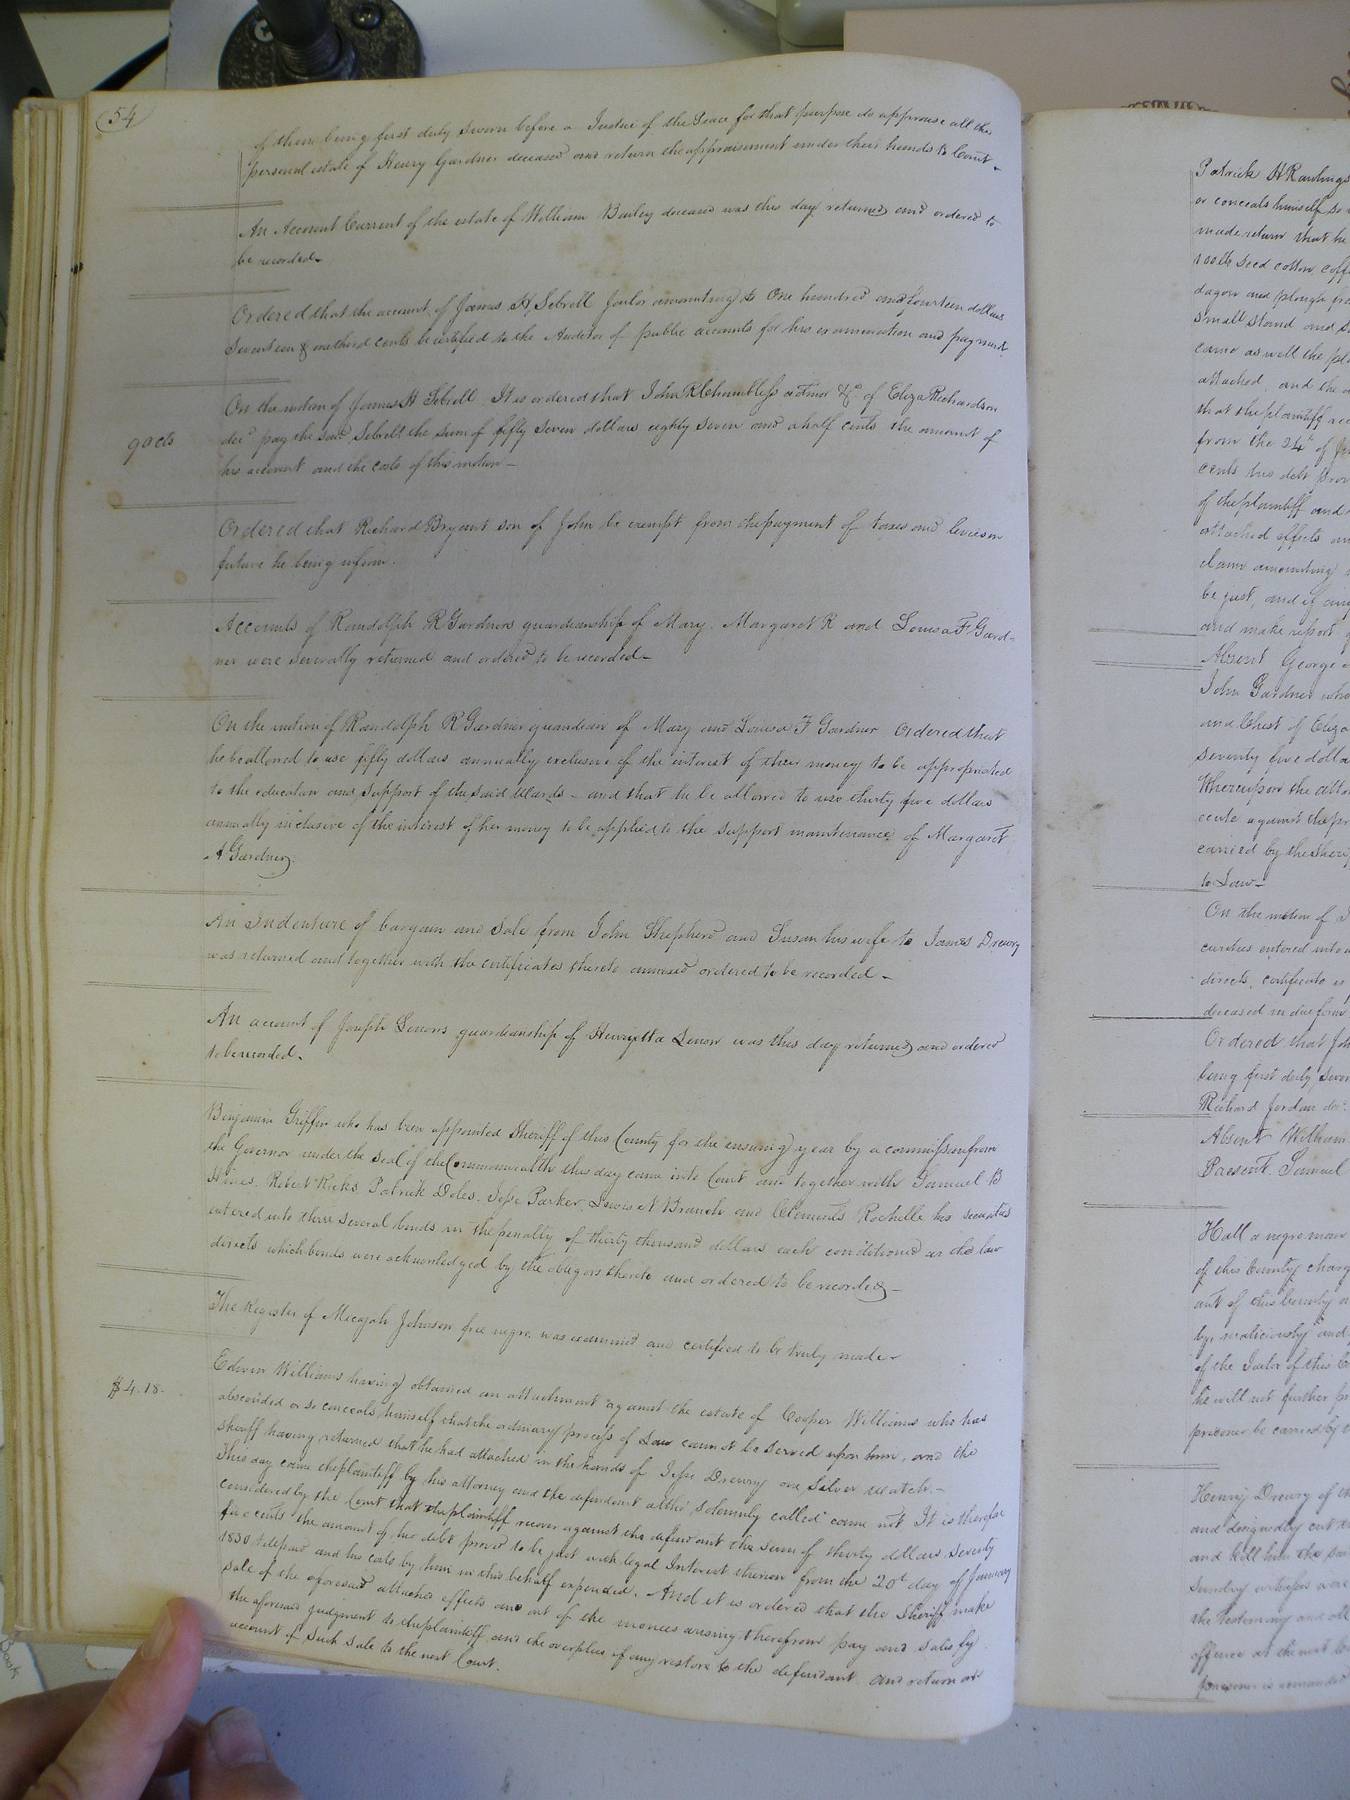 54
of them being first duly sworn before a Justice of the Peace for that purpose do appraise all the
personal estate of Henry Gardner deceased and return the appraisement under their hands to Court.
An Account Current of the estate of William Bailey deceased was this day returned and ordered to
be recorded.
Ordered that the account of James H. Sebrell Jailor amounting to One hundred and fourteen dollars
Seventeen & one third cents be certified to the Auditor of public accounts for his examination and payment.
On the motion of James H Sebrell. It is ordered that John R Chambless admor &c of Eliza Richardson
90 cts
decd pay the said Sebrell the sum of fifty seven dollars eighty seven and a half cents the amount of
his account and the costs of this motion—
Ordered that Richard Bryant son of John be exempt from the payment of taxes and levies in
future he being infirm.
Accounts of Randolph R Gardners guardianship of Mary, Margaret R and Louisa F. Gard-
ner were severally returned and ordered to be recorded—
On the motion of Randolph R Gardner guardian of Mary and Louisa F Gardner Ordered that
he be allowed to use fifty dollars annually exclusive of the interest of their money to be appropriated
to the education and support of the said Wards— and that he be allowed to use thirty five dollars
annually inclusive of the interest of her money to be applied to the support maintenance of Margaret
A Gardner.
An Indenture of bargain and Sale from John Shepherd and Susan his wife to James Drewry
was returned and together with the certificates thereto annexed ordered to be recorded—
An account of Joseph Lenows guardianship of Henrietta Lenow was this day returned and ordered
to be recorded.
Benjamin Griffin who has been appointed Sheriff of this County for the ensuing year by a commission from
the Governor under the Seal of the Commonwealth this day came into Court and together with Samuel B
Hines, Robert Ricks, Patrick Doles, Jesse Parker, Lewis N Branch and Clements Rochelle his securities
entered into three several bonds in the penalty of thirty thousand dollars each conditioned as the law
directs which bonds were acknowledged by the obligors thereto and ordered to be recorded—
The Register of Micajah Johnson free negro, was examined and certified to be truly made.
Edwin Williams having obtained an attachment against the estate of Cooper Williams who has
$4.18.
absconded or so conceals himself that the ordinary process of Law cannot be served upon him, and the
sheriff having returned that he had attached in the hands of Jesse Drewry one Silver watch.—
This day came the plaintiff by his attorney and the defendant altho' solemnly called came not It is therefore
considered by the Court that the plaintiff recover against the defendant the sum of thirty dollars seventy
five cents the amount of his debt proved to be just with legal Interest thereon from the 20th day of January
1830 till paid and his costs by him in this behalf expended. And it is ordered that the Sheriff make
sale of the aforesaid attached effects and out of the monies arising therefrom pay and satisfy
the aforesaid judgment to the plaintiff and the overplus if any restore to the defendant and return an
account of Such sale to the next Court.
Patrick H Rawlings
or conceals himself so
made return that he
100 lb Seed cotton
dagon and plough
small Stand and
came as well the
attached, and the
that the plaintiff
from the 24th of
cents his debt
of the plaintiff and
attached effects
claim amounting
be just, and if any
and make report
Absent George
John Gardner who
and Chest of Eliza
seventy five dollars
Whereupon the
cute against the
carried by the Sheriff
to Law—
On the motion of
curities entered into
directs, certificate is
deceased in due form
Ordered that John
being first duly sworn
Richard Jordan decd.
Absent William
Present. Samuel
Hall a negro man
of this County charg
ant of this County
by, maliciously and
of the Jailor of this
he will not further
prisoner be carried by
Henry Drewry of
and designedly cut
and kill him the said
Sundry witnesses were
the testimony and
offence at the next
prisoner is remanded